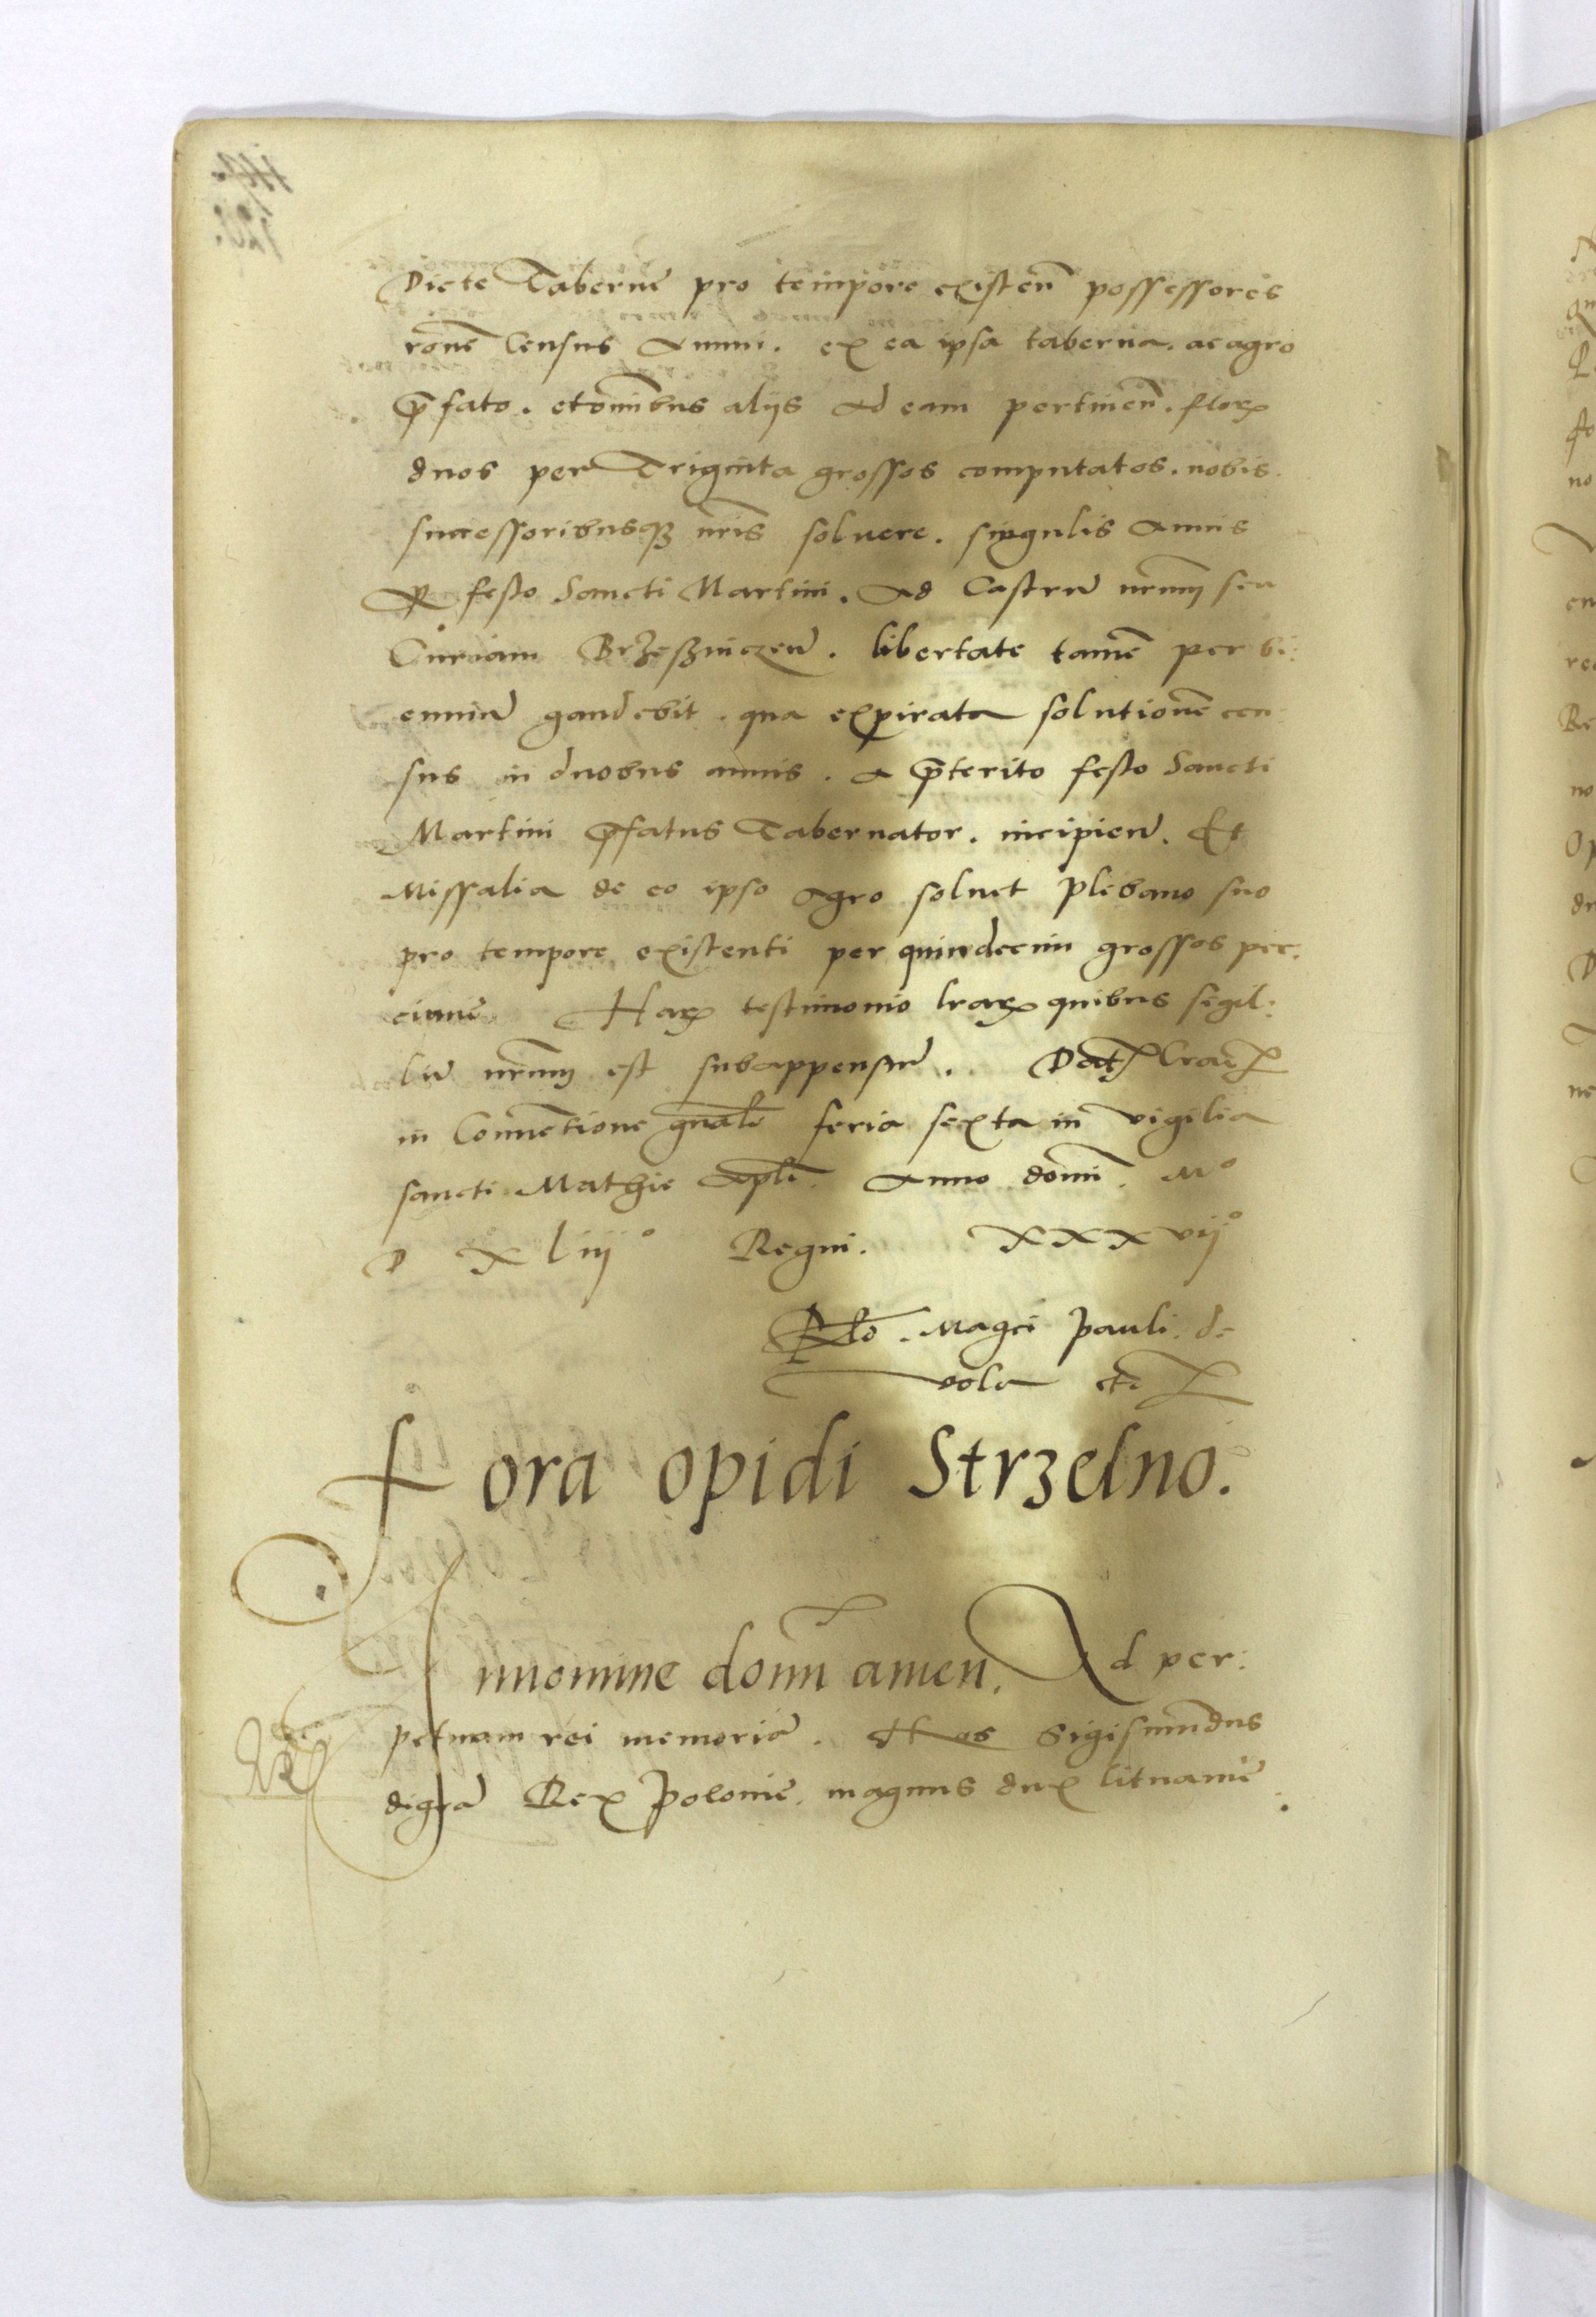 Dicte Taberne pro tempore existen̄ possessores
rōne Census Annui. ex ea ipsa taberna. ac agro
p̄fato. et om̄ibus alijs ad eam pertinen̄. floꝝ
duos per Triginta grossos computatos. nobis.
successoribusqꝫ nr̄is soluere. singulis Annis
festo Sancti Martini. Ad Castrū nr̄um seu
Curiam Brzeßniczen̄. libertate tamē per bi:
enniū gaudebit. qua expirata solutionē cen:
sus in duobus annis. a p̄terito festo Sancti
Martini p̄fatus Tabernator. incipien̄. Et
Missalia de eo ipso agro soluet plebano suo
pro tempore existenti per quindecim grossos pec:
cunie Haꝝ testimonio lr̄aꝝ quibus sigil:
lū nr̄um est subappensū. Dat̄ Crac̄
in Conuētione gn̄ali feria sexta in vigilia
sancti Mathie Apl̄i. Anno domī. Mo
D X Liijo Regni. XXXvijo
Rl̄o. Magci Pauli de
vola etc
Fora opidi Strzelno.
In nomine domī amen. Ad per:
petuam rei memoriā. Nos Sigismundus
dei gr̄a Rex Polonie. magnus dux lituanie.